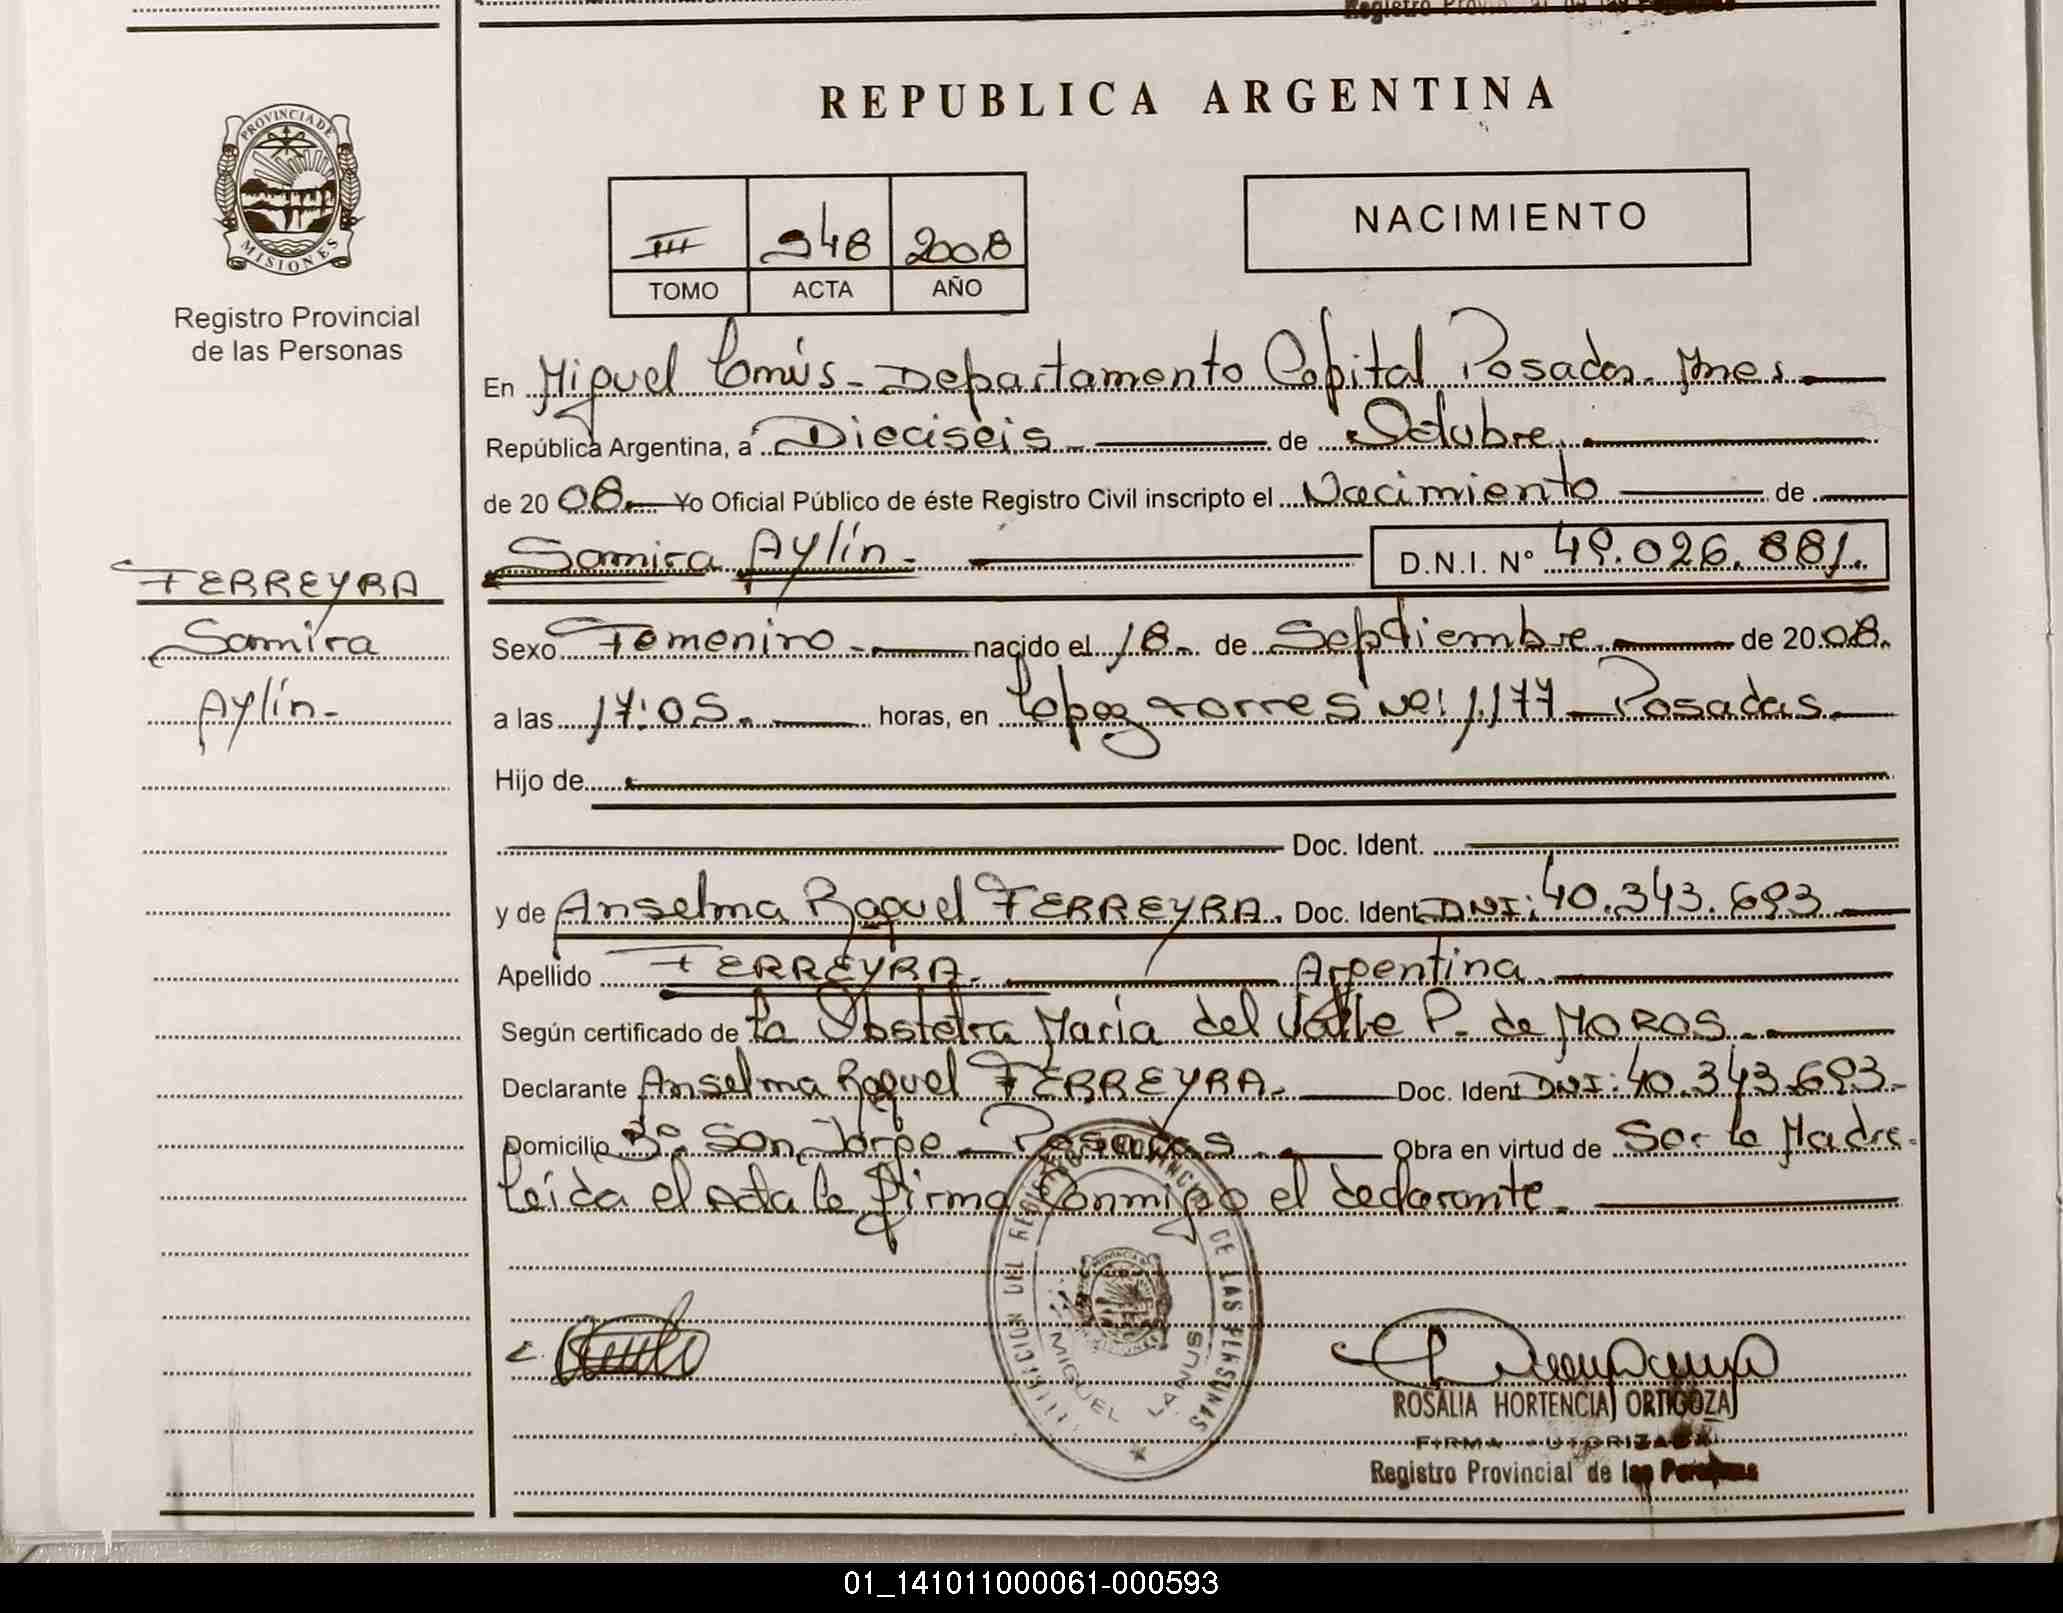 REPUBLICA ARGENTINA
PROVINCIA DE
MISIONES
Registro Provincial
de las Personas
III 948 2008
TOMO ACTA AÑO
NACIMIENTO
En Miguel Lanús - Departamento Capital Posadas - Mnes.
República Argentina, a Dieciseis de Octubre
de 20 08. Yo Oficial Público de éste Registro Civil inscripto el Nacimiento de
Samira Aylín. D.N.I. Nº 49.026.881.
FERREYRA
Samira
Aylín -
Sexo Femenino - nacido el 18. de Septiembre de 20 08.
a las 17:05. horas, en Lopez torres Nº: 1.177 - Posadas
Hijo de
Doc. Ident.
y de Anselma Raquel FERREYRA. Doc. Ident DNI: 40.343.693
Apellido FERREYRA. Argentina
Según certificado de la Obstetra María del Valle P. de MOROS
Declarante Anselma Raquel FERREYRA. Doc. Ident DNI: 40.343.693
Domicilio Bº San Jorge - Posadas Obra en virtud de Ser la Madre.
Leída el Acta la firma conmigo el declarante.
DEL REGISTRO PROVINCIAL DE LAS PERSONAS
MIGUEL LANUS
ROSALIA HORTENCIA ORTIGOZA
FIRMA AUTORIZADA
Registro Provincial de las Personas
01_141011000061-000593